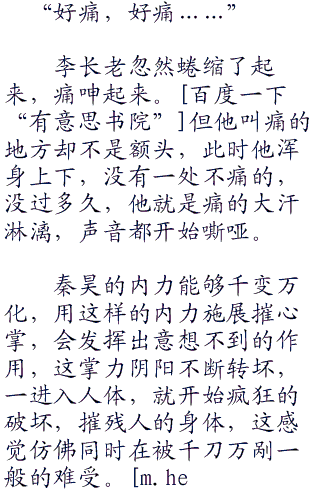 “好痛，好痛……”
李长老忽然蜷缩了起
来，痛呻起来。[百度一下
“有意思书院”]但他叫痛的
地方却不是额头，此时他浑
身上下，没有一处不痛的，
没过多久，他就是痛的大汗
淋漓，声音都开始嘶哑。
秦昊的内力能够千变万
化，用这样的内力施展摧心
掌，会发挥出意想不到的作
用，这掌力阴阳不断转坏，
一进入人体，就开始疯狂的
破坏，摧残人的身体，这感
觉仿佛同时在被千刀万剐一
般的难受。[m.he